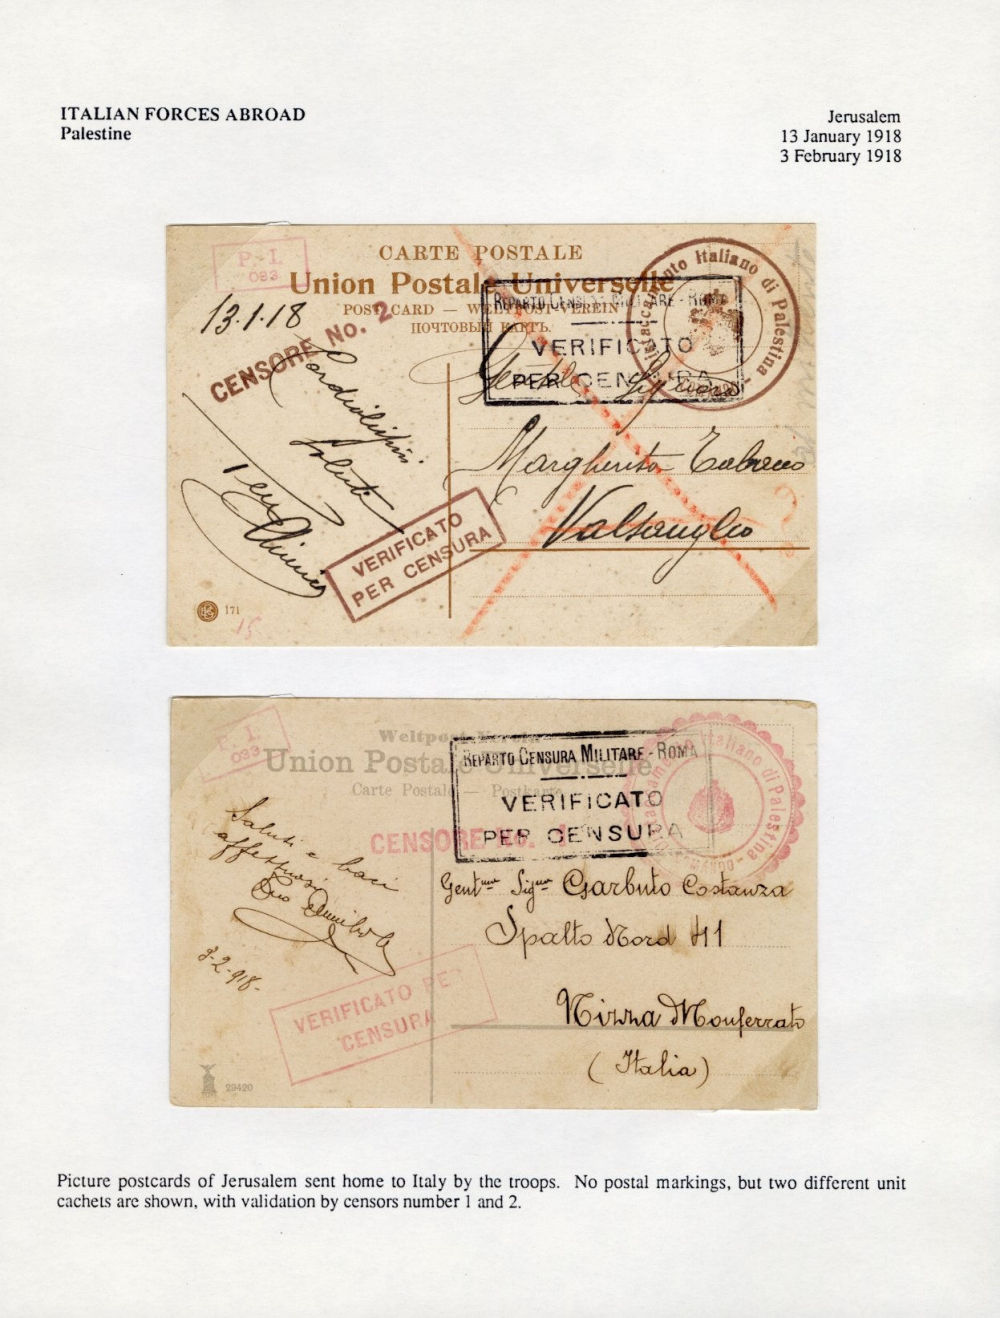 ITALIAN FORCES ABROAD
Palestine
Jerusalem
13 January 1918
3 February 1918
P.I.
033
CARTE POSTALE
Union Postale Universelle
POST CARD — WELTPOST-VEREIN
ПОЧТОВЫЙ КАРТЪ.
13.1.18
CENSORE No. 2
REPARTO CENSURA MILITARE - ROMA
VERIFICATO
PER CENSURA
Distaccamento Italiano di Palestina
Margherita
VERIFICATO
PER CENSURA
171
15
P.I.
033
Weltpost-Verein
Union Postale Universelle
Carte Postale — Postkarte
REPARTO CENSURA MILITARE - ROMA
VERIFICATO
PER CENSURA
Distaccamento Italiano di Palestina
CENSORE No. 1
Saluti e baci
affettuosi
3-2-918-
Gent.ma Sig.na Garbuto Costanza
Spalto Nord 41
Nizza Monferrato
(Italia)
VERIFICATO PER
CENSURA
29420
Picture postcards of Jerusalem sent home to Italy by the troops. No postal markings, but two different unit
cachets are shown, with validation by censors number 1 and 2.